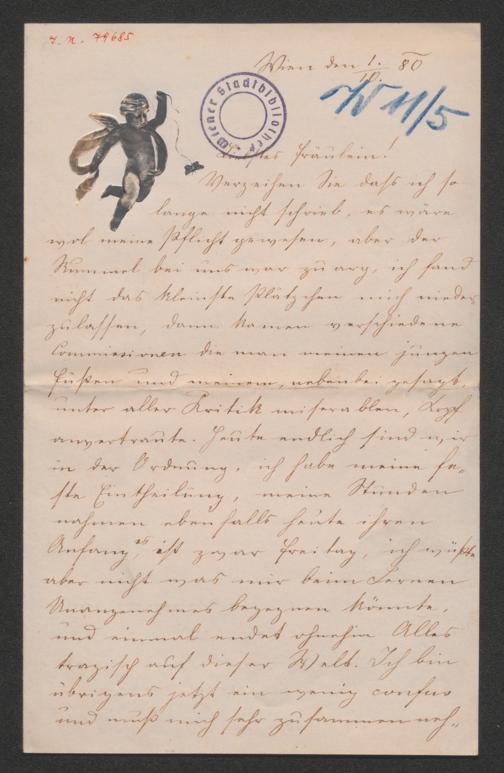 J. N. 79685
Wien den 1./10. 80
IV 11/5
Wiener Stadtbibliothek
Liebstes Fräulein!
Verzeihen Sie daß ich so
lange nicht schrieb, es wäre
wol meine Pflicht gewesen, aber der
Rummel bei uns war zu arg, ich fand
nicht das kleinste Plätzchen mich nieder
zulassen, dann kamen verschiedene
Commissionen die man meinen jungen
Füßen und meinem, nebenbei gesagt,
unter aller Kritik miserablen, Kopf
anvertraute. Heute endlich sind wir
in der Ordnung, ich habe meine fe-
ste Eintheilung, meine Stunden
nahmen ebenfalls heute ihren
Anfang, es ist zwar Freitag, ich wüßte
aber nicht was mir beim Lernen
Unangenehmes begegnen könnte,
und einmal endet ohnehin Alles
tragisch auf dieser Welt. Ich bin
übrigens jetzt ein wenig confus
und muß mich sehr zusammen neh-